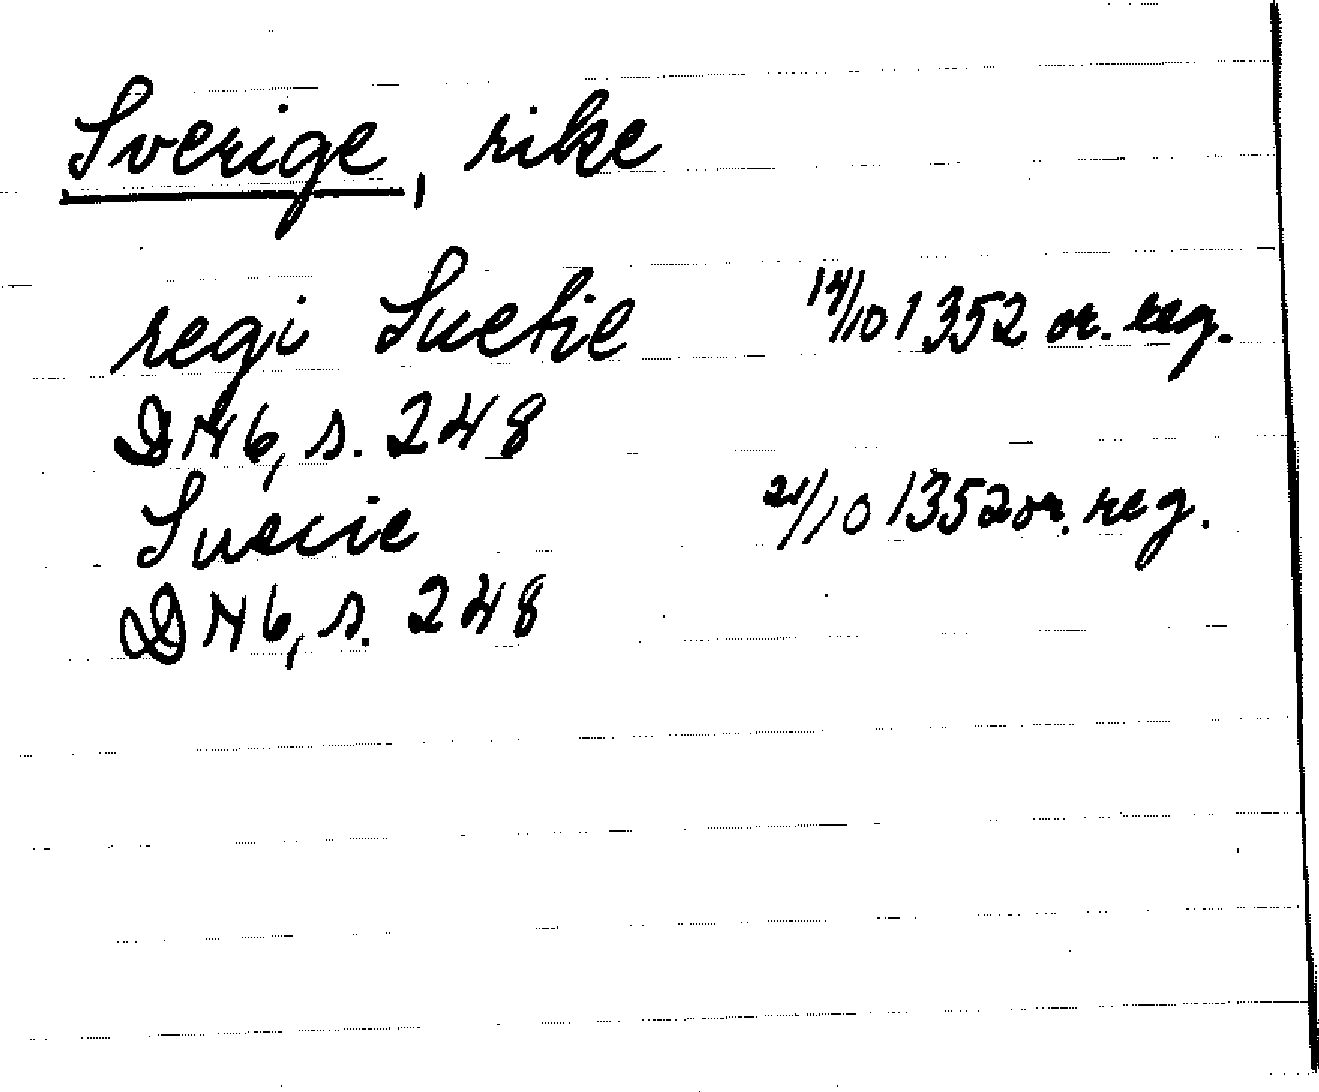 Sverige, rike
regi Suetie 14/10 1352 or. reg.
DN6, s. 248
Suecie 21/10 1352 or. reg.
DN6, s. 248